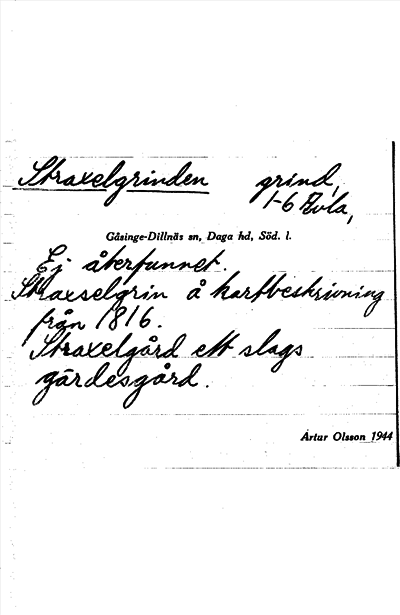 Straxelgrinden grind,
1-6 Zvla,
Gåsinge-Dillnäs sn, Daga hd, Söd. l.
Ej återfunnet.
Straxselgrin å kartbeskrivning
från 1816.
Straxelgård ett slags
gärdesgård.
Artur Olsson 1944